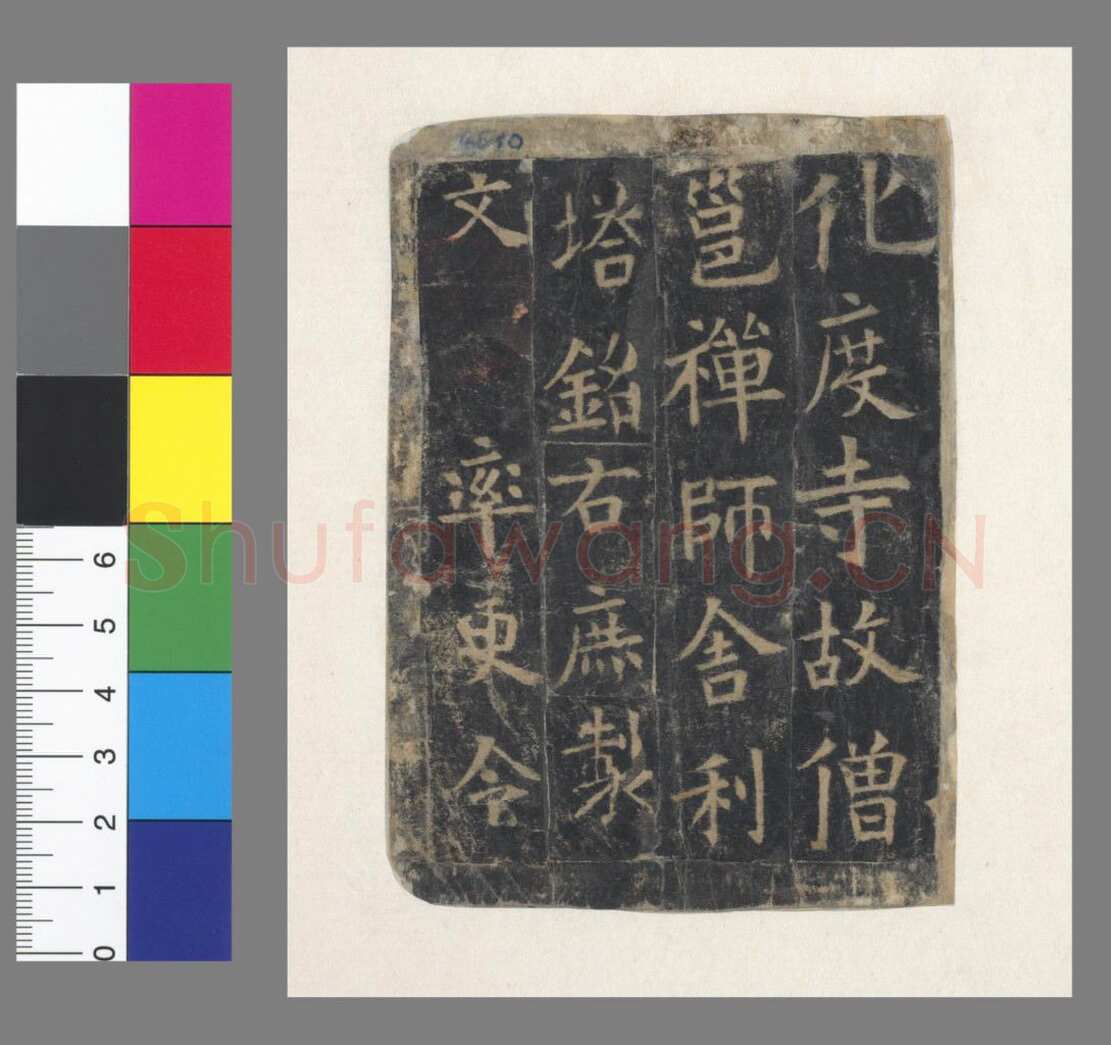 化度寺故僧
邕禪師舍利
塔銘右庶製
文 率更令
Shufawang.CN
6
5
4
3
2
1
0